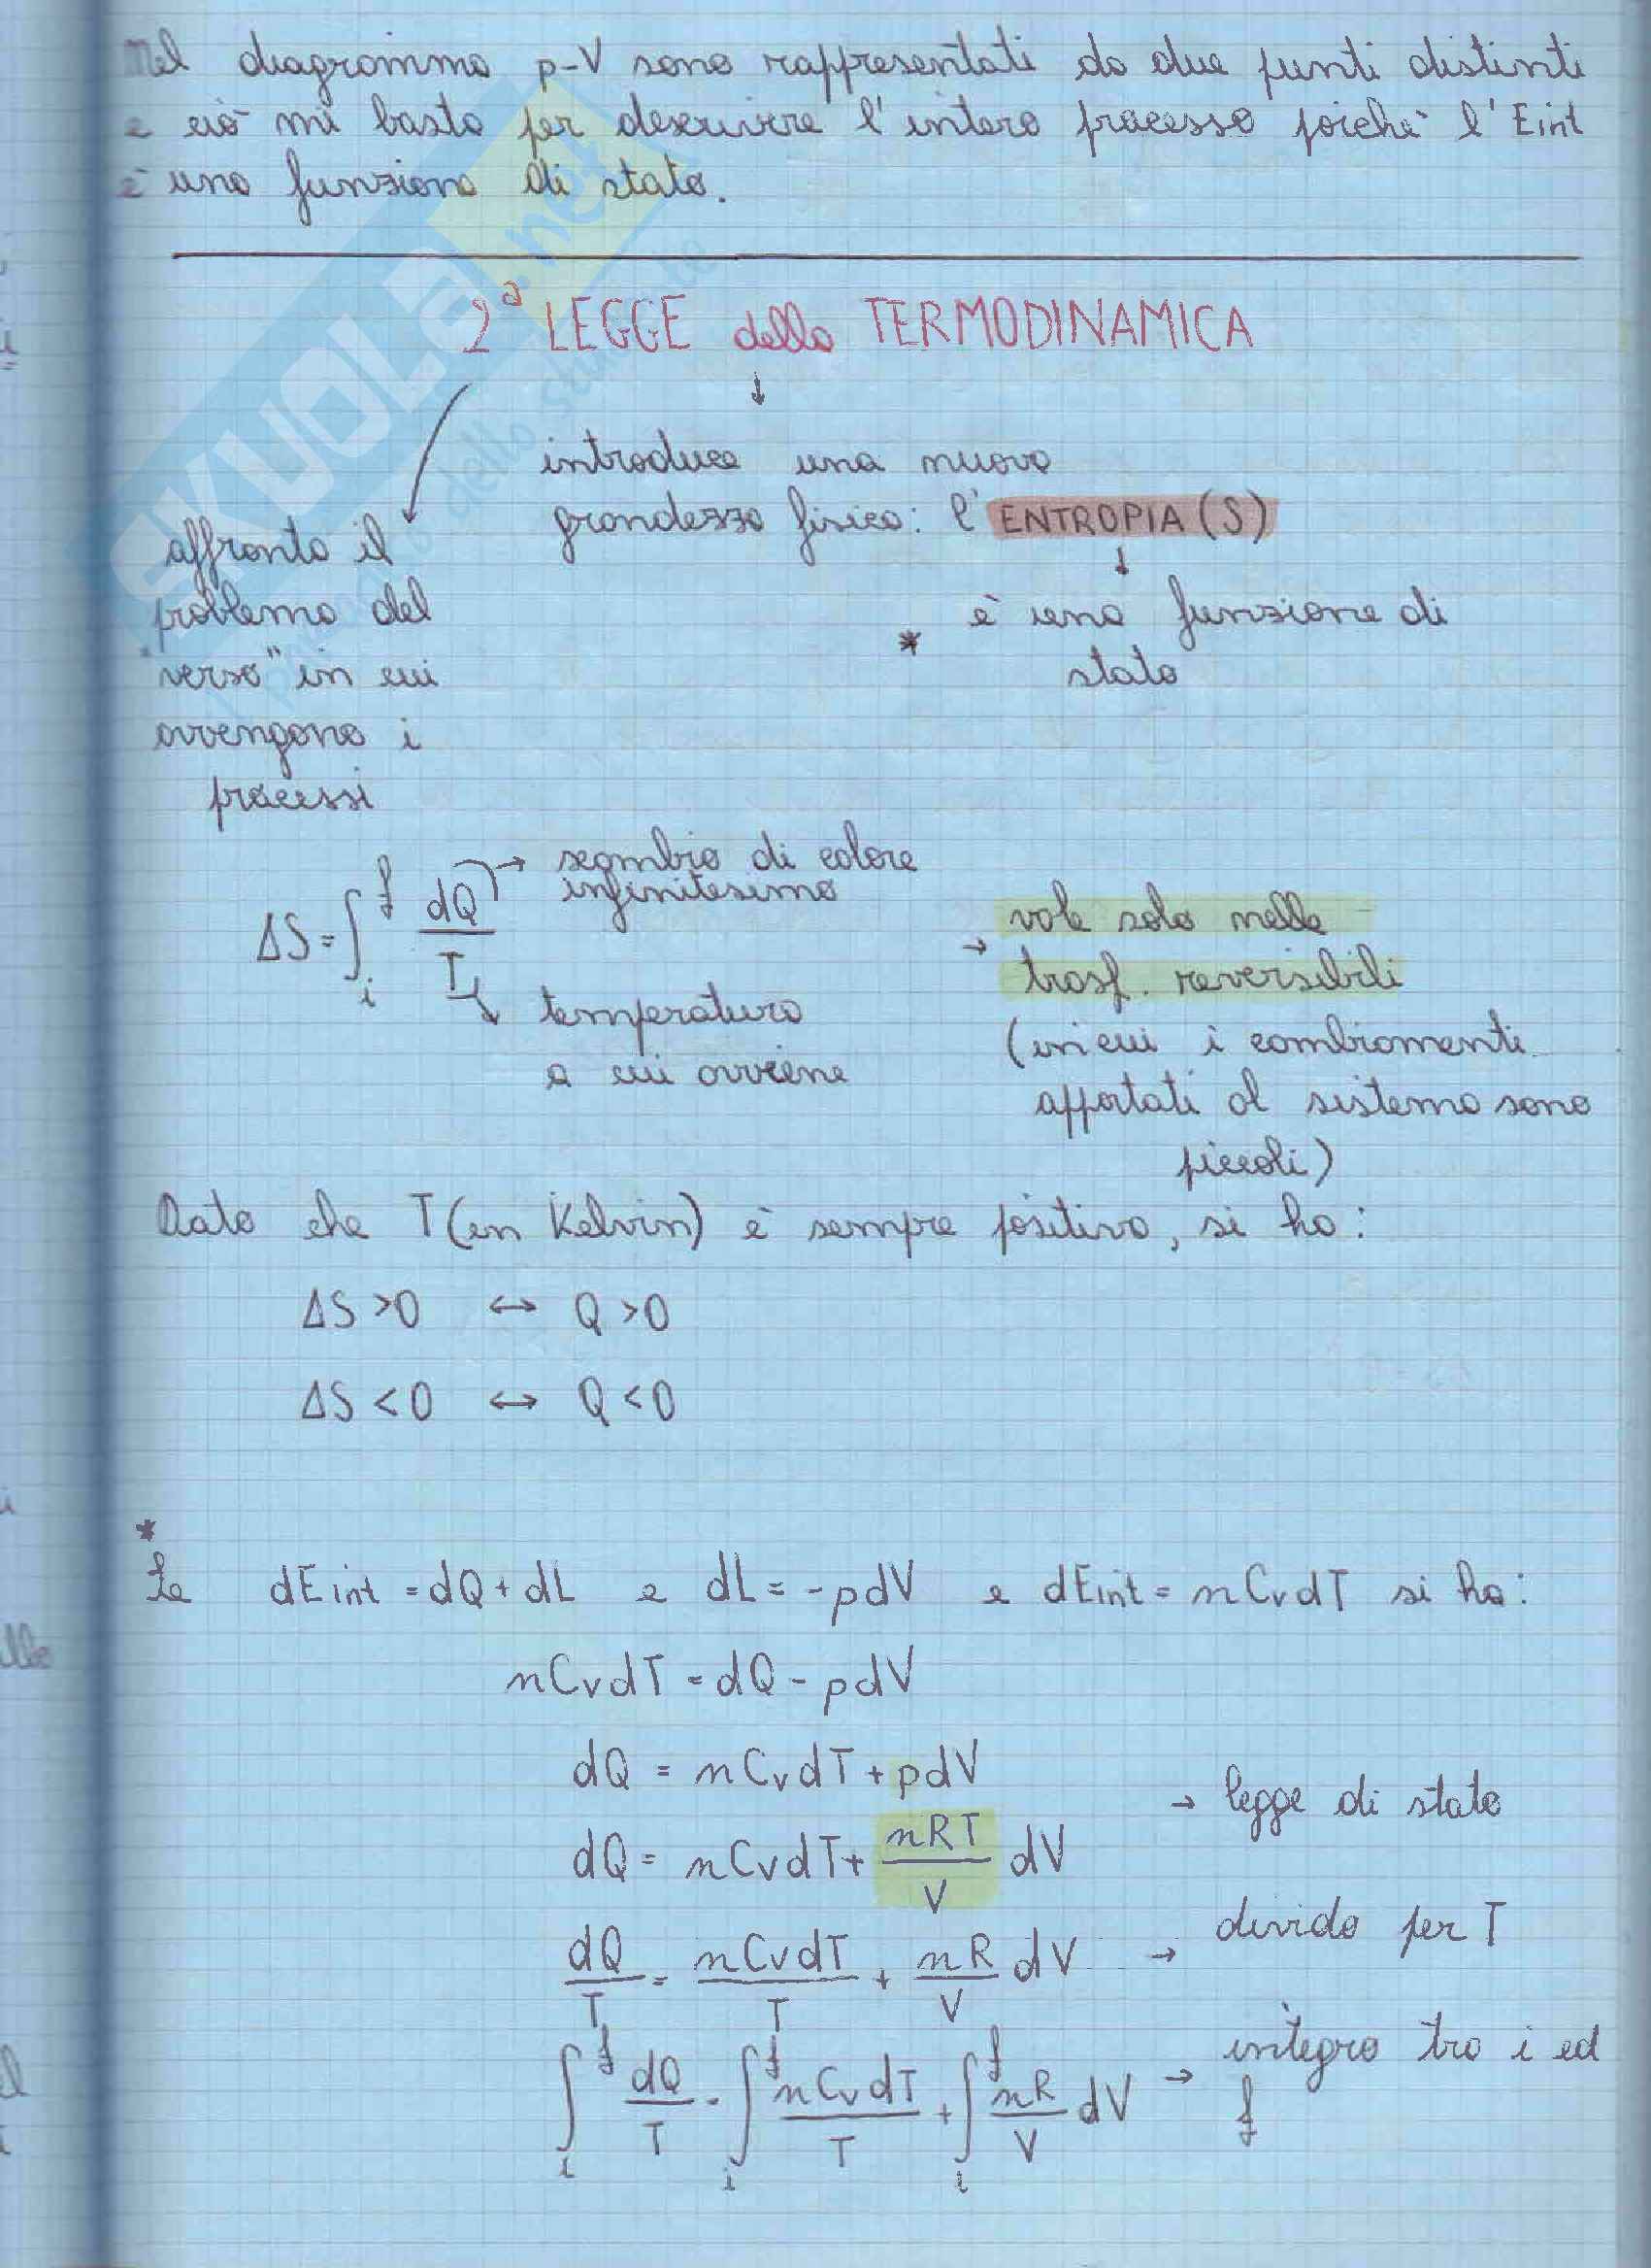 Nel diagramma p-V sono rappresentati da due punti distinti
e ciò mi basta per descrivere l'intero processo poichè l'Eint
è una funziona di stato.
2ª LEGGE della TERMODINAMICA
↓
introduce una nuova
grandezza fisica: l'ENTROPIA (S)
↓
* è una funzione di
stato
affronta il
problema del
"verso" in cui
avvengono i
processi
ΔS = ∫_i^f dQ/T
→ scambio di calore
infinitesimo
temperatura
a cui avviene
→ vale solo nelle
trasf. reversibili
(in cui i cambiamenti
apportati al sistema sono
piccoli)
Dato che T (in Kelvin) è sempre positiva, si ha:
ΔS > 0 ↔ Q > 0
ΔS < 0 ↔ Q < 0
*
Se dEint = dQ + dL e dL = - pdV e dEint = nCvdT si ha:
nCvdT = dQ - pdV
dQ = nCvdT + pdV
dQ = nCvdT + nRT/V dV → legge di stato
dQ/T = nCvdT/T + nR/V dV → divido per T
∫_i^f dQ/T = ∫_i^f nCvdT/T + ∫_i^f nR/V dV → integro tra i ed
f
SKUOLA.net